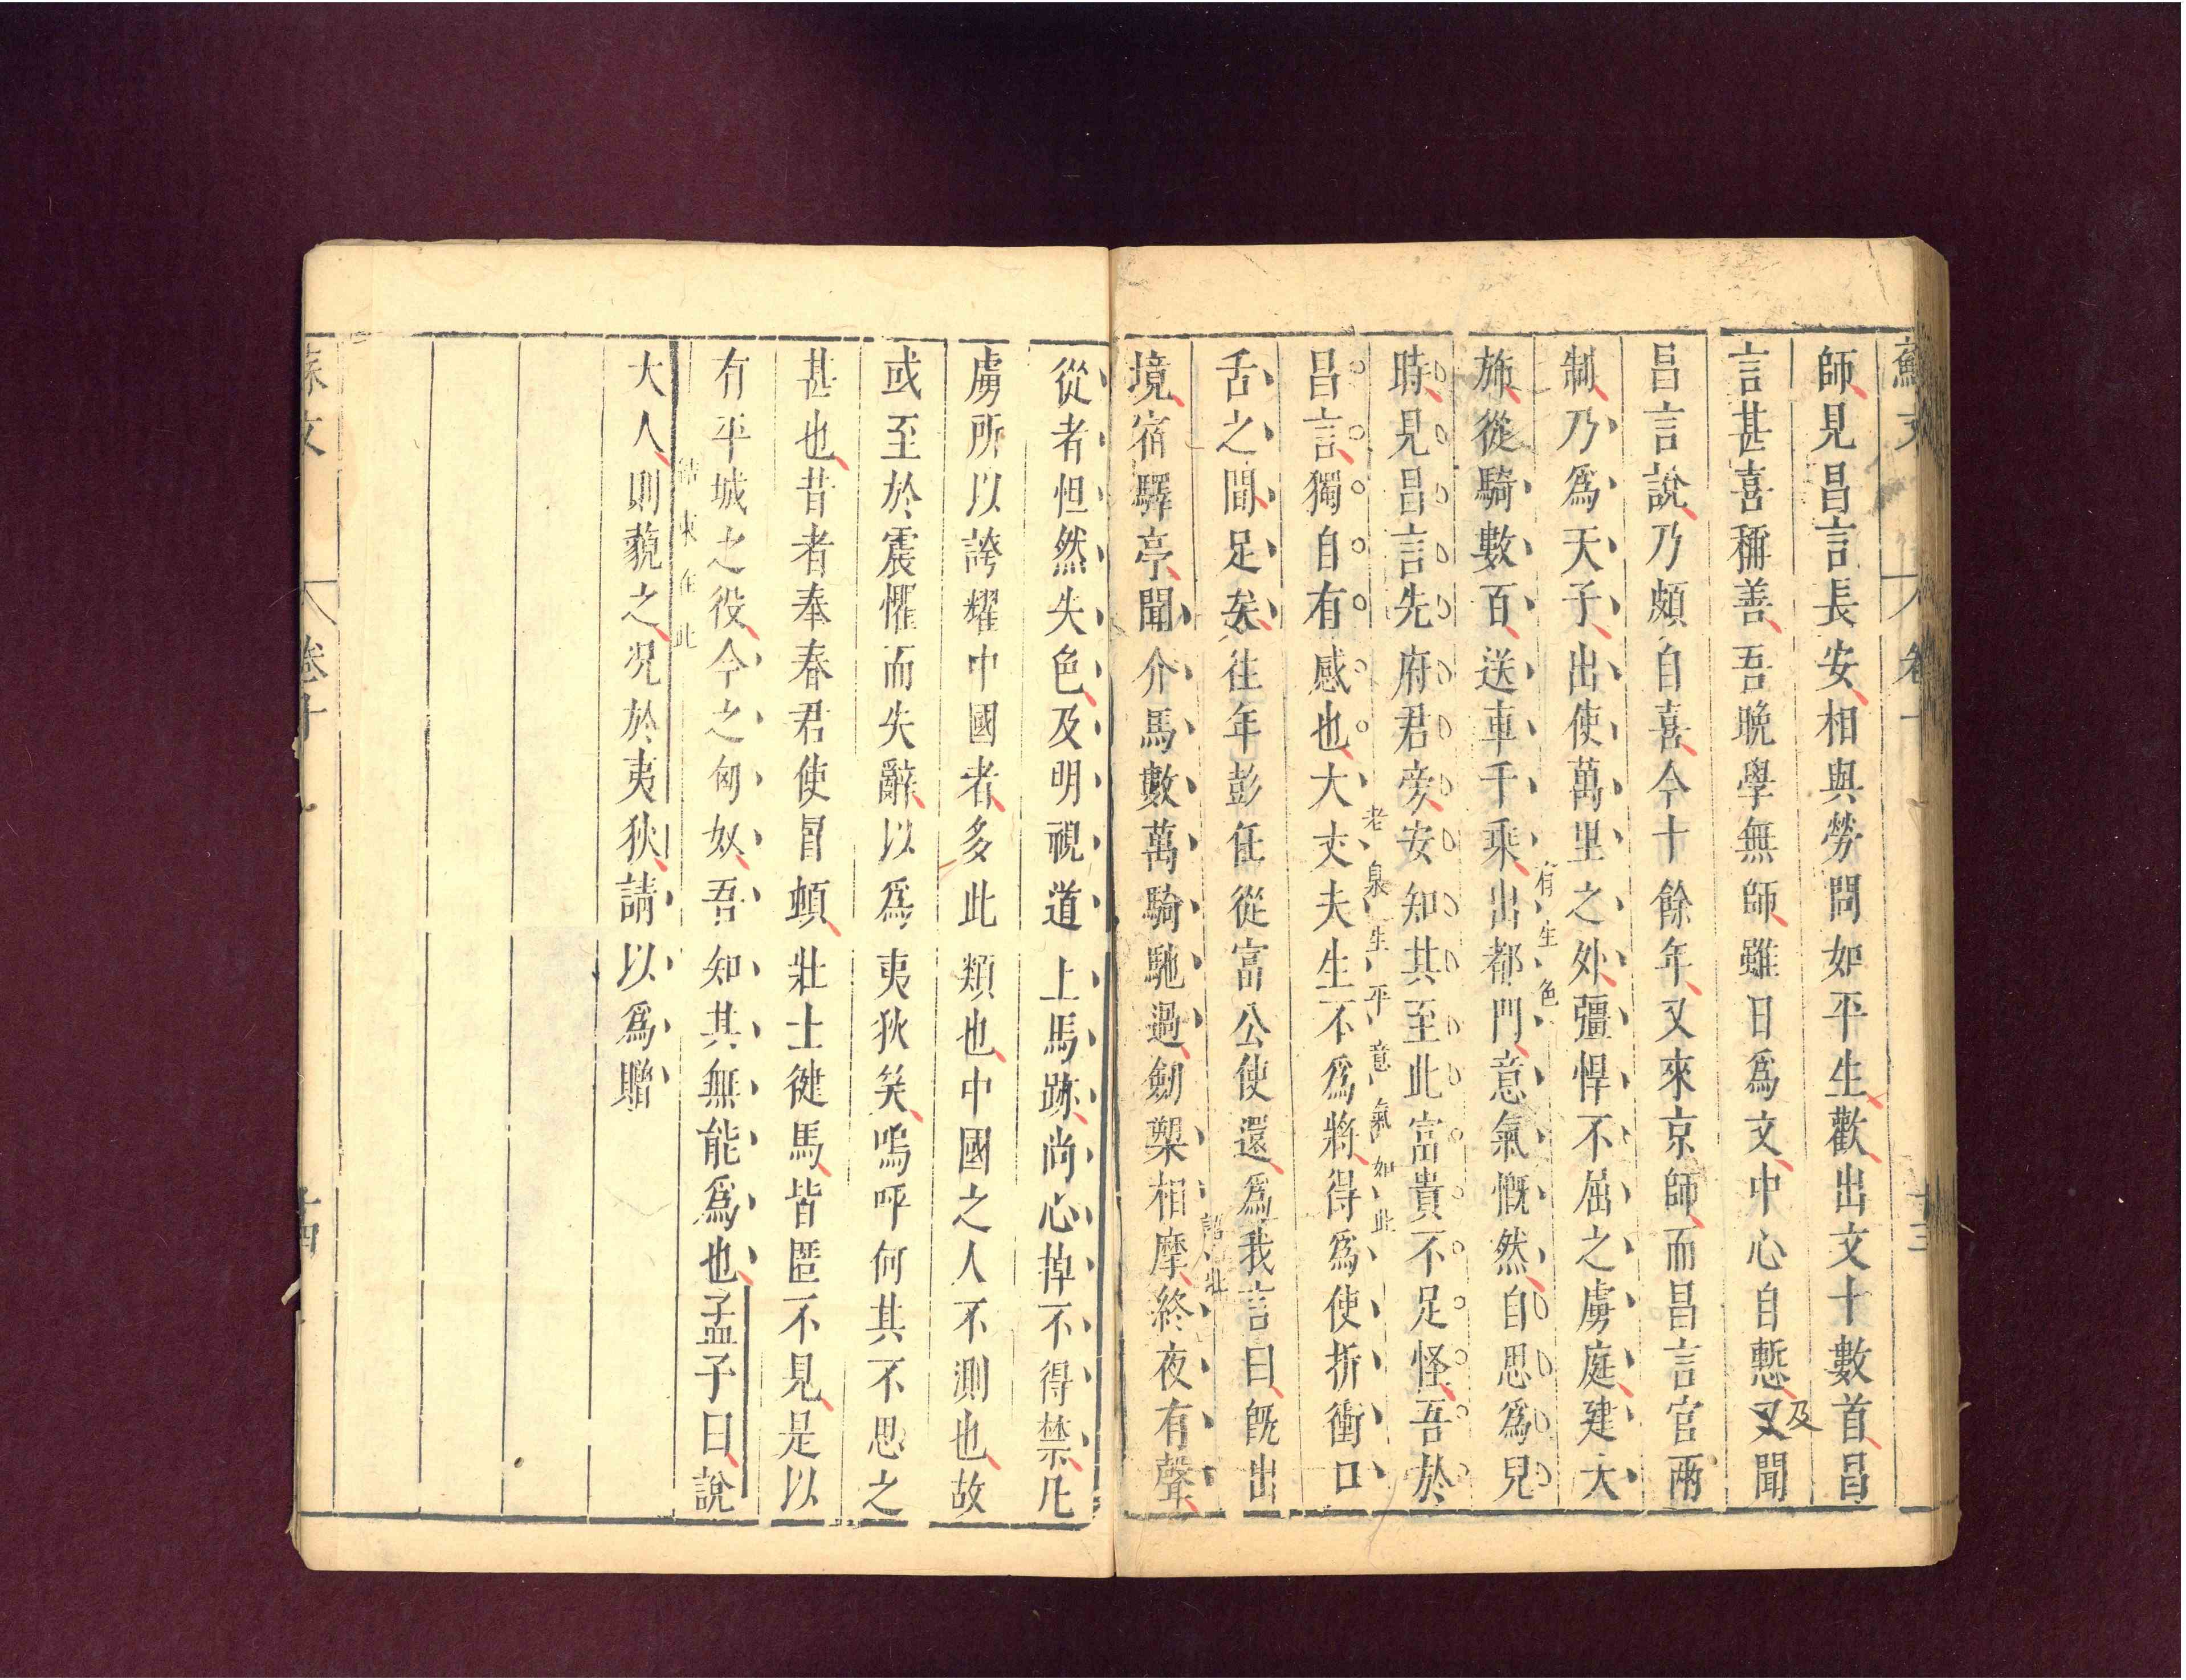 蘇文
卷十
十三
師見昌言長安相與勞問如平生歡出文十數首昌
言甚喜稱善吾晚學無師雖日爲文中心自慙又聞
及
昌言說乃頗自喜今十餘年又來京師而昌言官兩
制乃爲天子出使萬里之外彊悍不屈之虜庭建大
有生色
旆從騎數百送車千乘出都門意氣慨然自思爲兒
時見昌言先府君旁安知其至此富貴不足怪吾於
老泉生平意氣如此
昌言獨自有感也大丈夫生不爲將得爲使折衝口
舌之間足矣往年彭任從富公使還爲我言曰旣出
語壯
境宿驛亭聞介馬數萬騎馳過劒槊相摩終夜有聲
從者怛然失色及明視道上馬跡尚心掉不得禁凡
虜所以誇耀中國者多此類也中國之人不測也故
或至於震懼而失辭以爲夷狄笑嗚呼何其不思之
甚也昔者奉春君使冒頓壯士健馬皆匿不見是以
有平城之役今之匈奴吾知其無能爲也孟子曰說
結束在此
大人則藐之况於夷狄請以爲贈
蘇文
卷十
十四